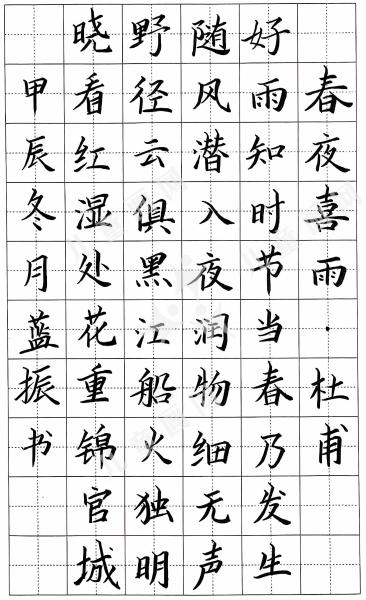 春夜喜雨·杜甫
好雨知时节当春乃发生
随风潜入夜润物细无声
野径云俱黑江船火独明
晓看红湿处花重锦官城
甲辰冬月蓝振书